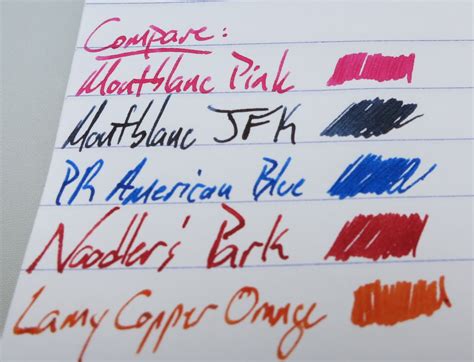 Compare:
Montblanc Pink
Montblanc JFK
PR American Blue
Noodler's Park
Lamy Copper Orange